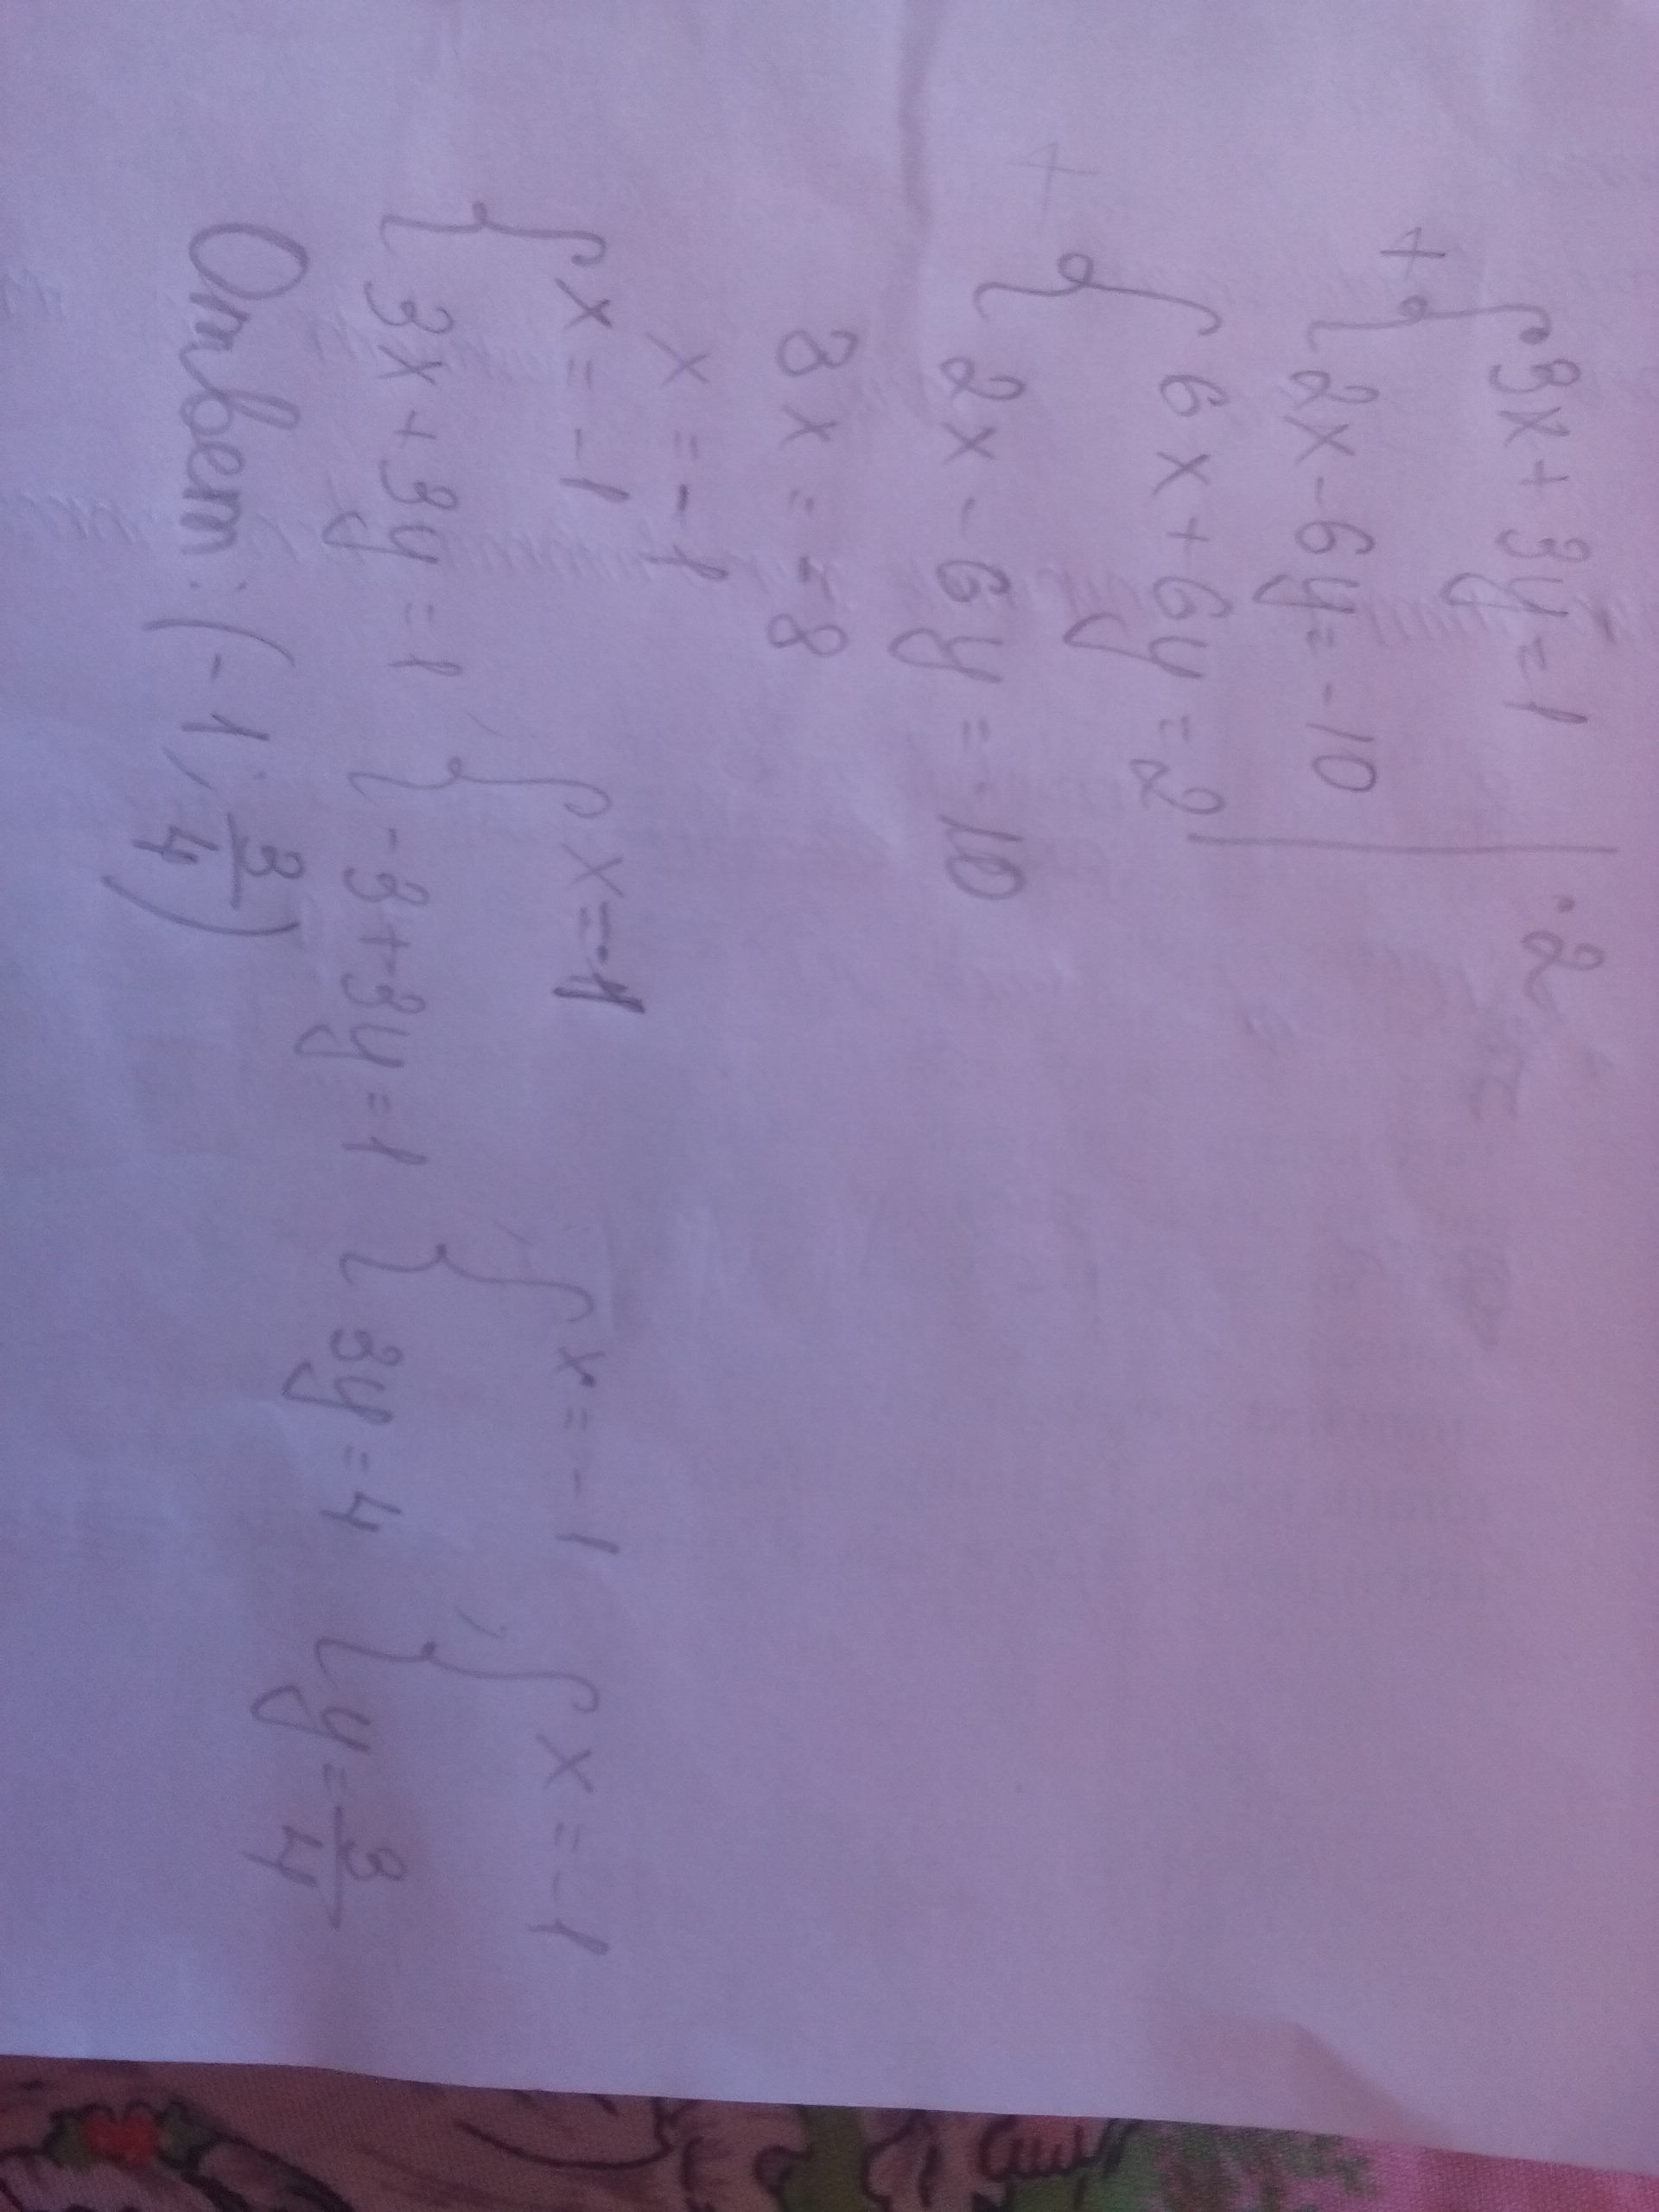 + { 3x + 3y = 1 | · 2
2x - 6y = -10
+ { 6x + 6y = 2
2x - 6y = -10
8x = -8
x = -1
{ x = -1 { x = -1 { x = -1 { x = -1
3x + 3y = 1 , -3 + 3y = 1 , 3y = 4 , y = 3/4
Ответ: (-1; 3/4)